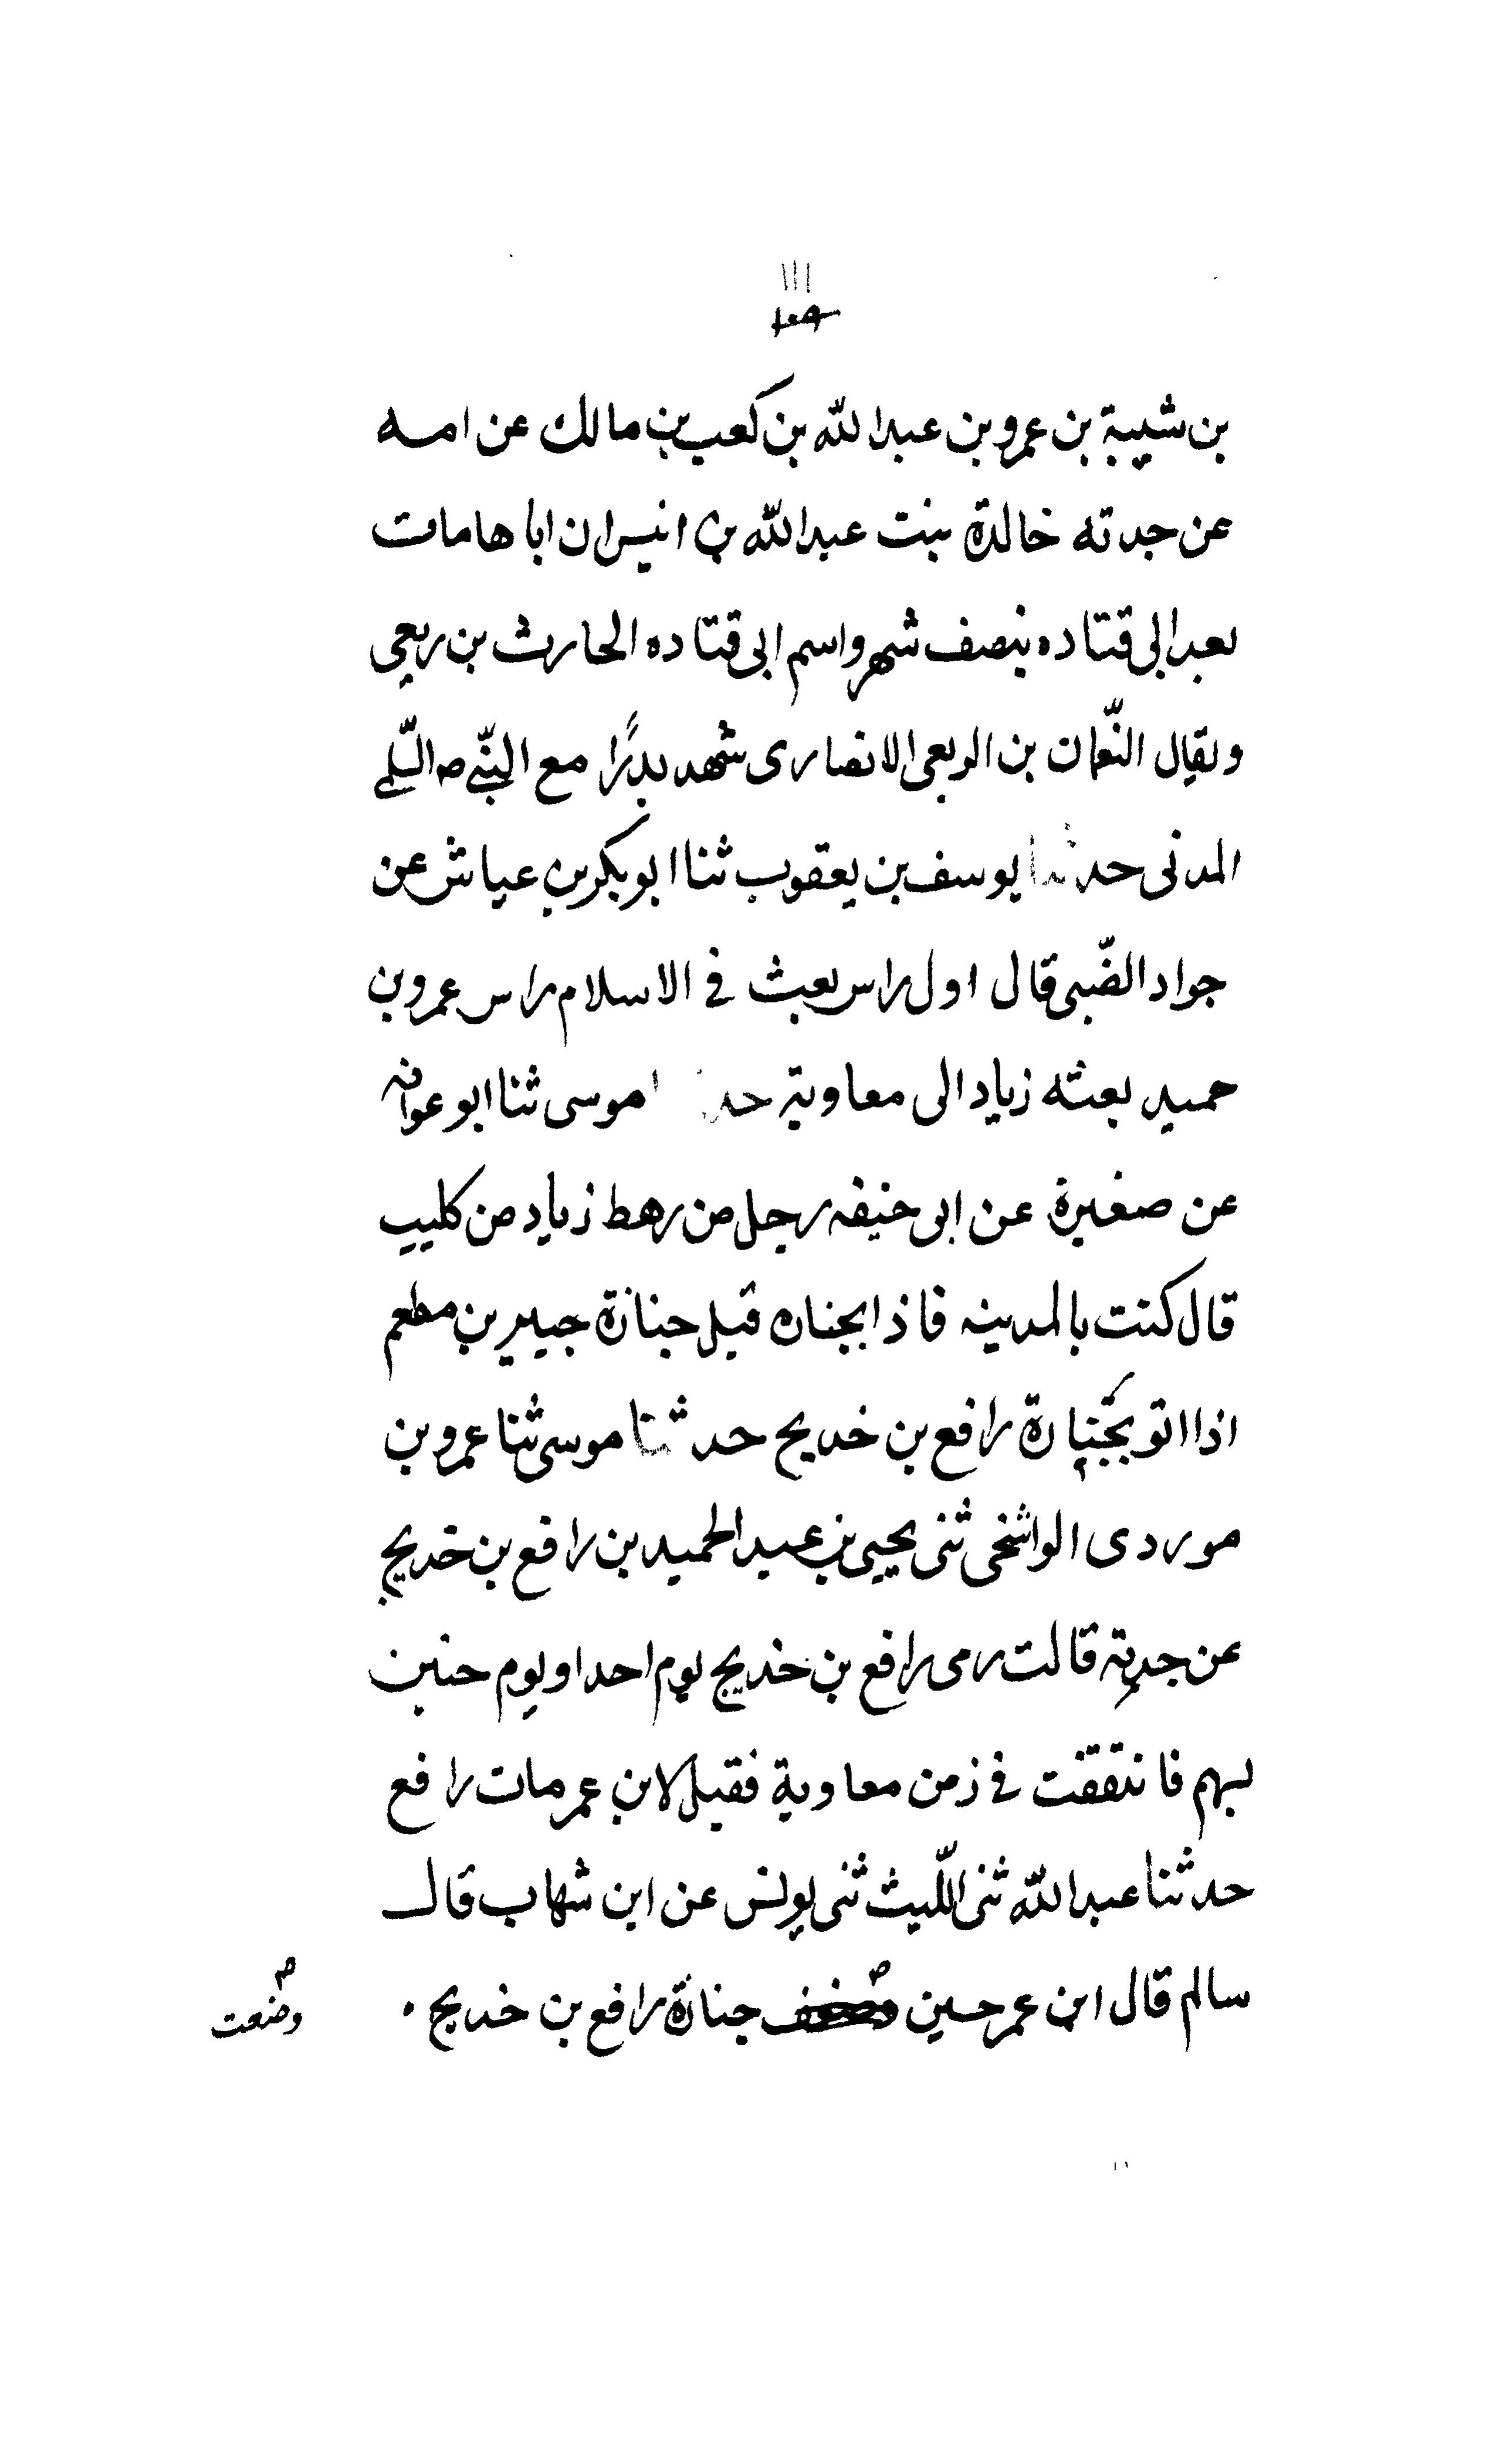 ١١١
١٠٩
بن شيبة بن عمرو بن عبد الله بن كعب بن مالك عن امه
عن جدته خالدة بنت عبد الله بن انيس ان اباها مات
بعد ابى قتاده بنصف شهر واسم ابى قتاده الحارث بن ربعى
ويقال النّعمان بن الربعى الانصارى شهد بدرًا مع النبّي ص السّلمي
المدنى حدثنا يوسف بن يعقوب ثنا ابو بكر بن عياش عن
جواد الضّبى قال اول راس بعث في الاسلام راس عمرو بن
حميد بعثه زياد الى معاوية حدثنا موسى ثنا ابو عوانه
عن صغيرة عن ابى حنيفه رجل من رهط زياد من كليب
قال كنت بالمدينه فاذا بجنازه قبل جنازة جبير بن مطعم
اذا اتو بجنازة رافع بن خديج حدثنا موسى ثنا عمرو بن
موردى الواشخى ثنى يحيى بن عبد الحميد بن رافع بن خديج
عن جدته قالت رمى رافع بن خديج يوم احد او يوم حنين
بسهم فانتقفت في زمن معاوية فقيل لابن عمر مات رافع
حدثنا عبد الله ثنى اللّيث ثنى يونس عن ابن شهاب قال
سالم قال ابن عمر حين ص جنازة رافع بن خديج .
ص
وضعت